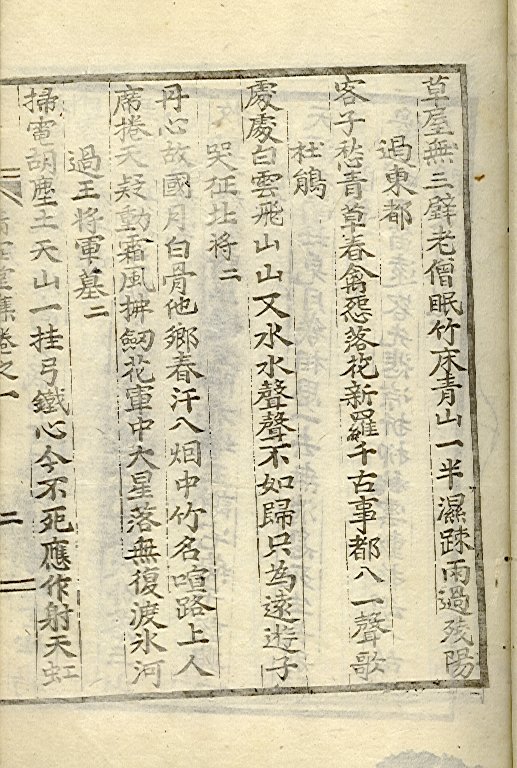 草屋無三壁老僧眠竹床青山一半濕踈雨過殘陽
過東都
客子愁青草春禽怨落花新羅千古事都入一聲歌
杜鵑
處處白雲飛山山又水水聲聲不如歸只為遠遊子
哭征北將二
丹心故國月白骨他鄉春汗入烟中竹名喧路上人
席捲天疑動霜風拂劒花軍中大星落無復渡氷河
過王將軍墓二
掃電胡塵土天山一挂弓鐵心今不死應作射天虹
卷之一
二